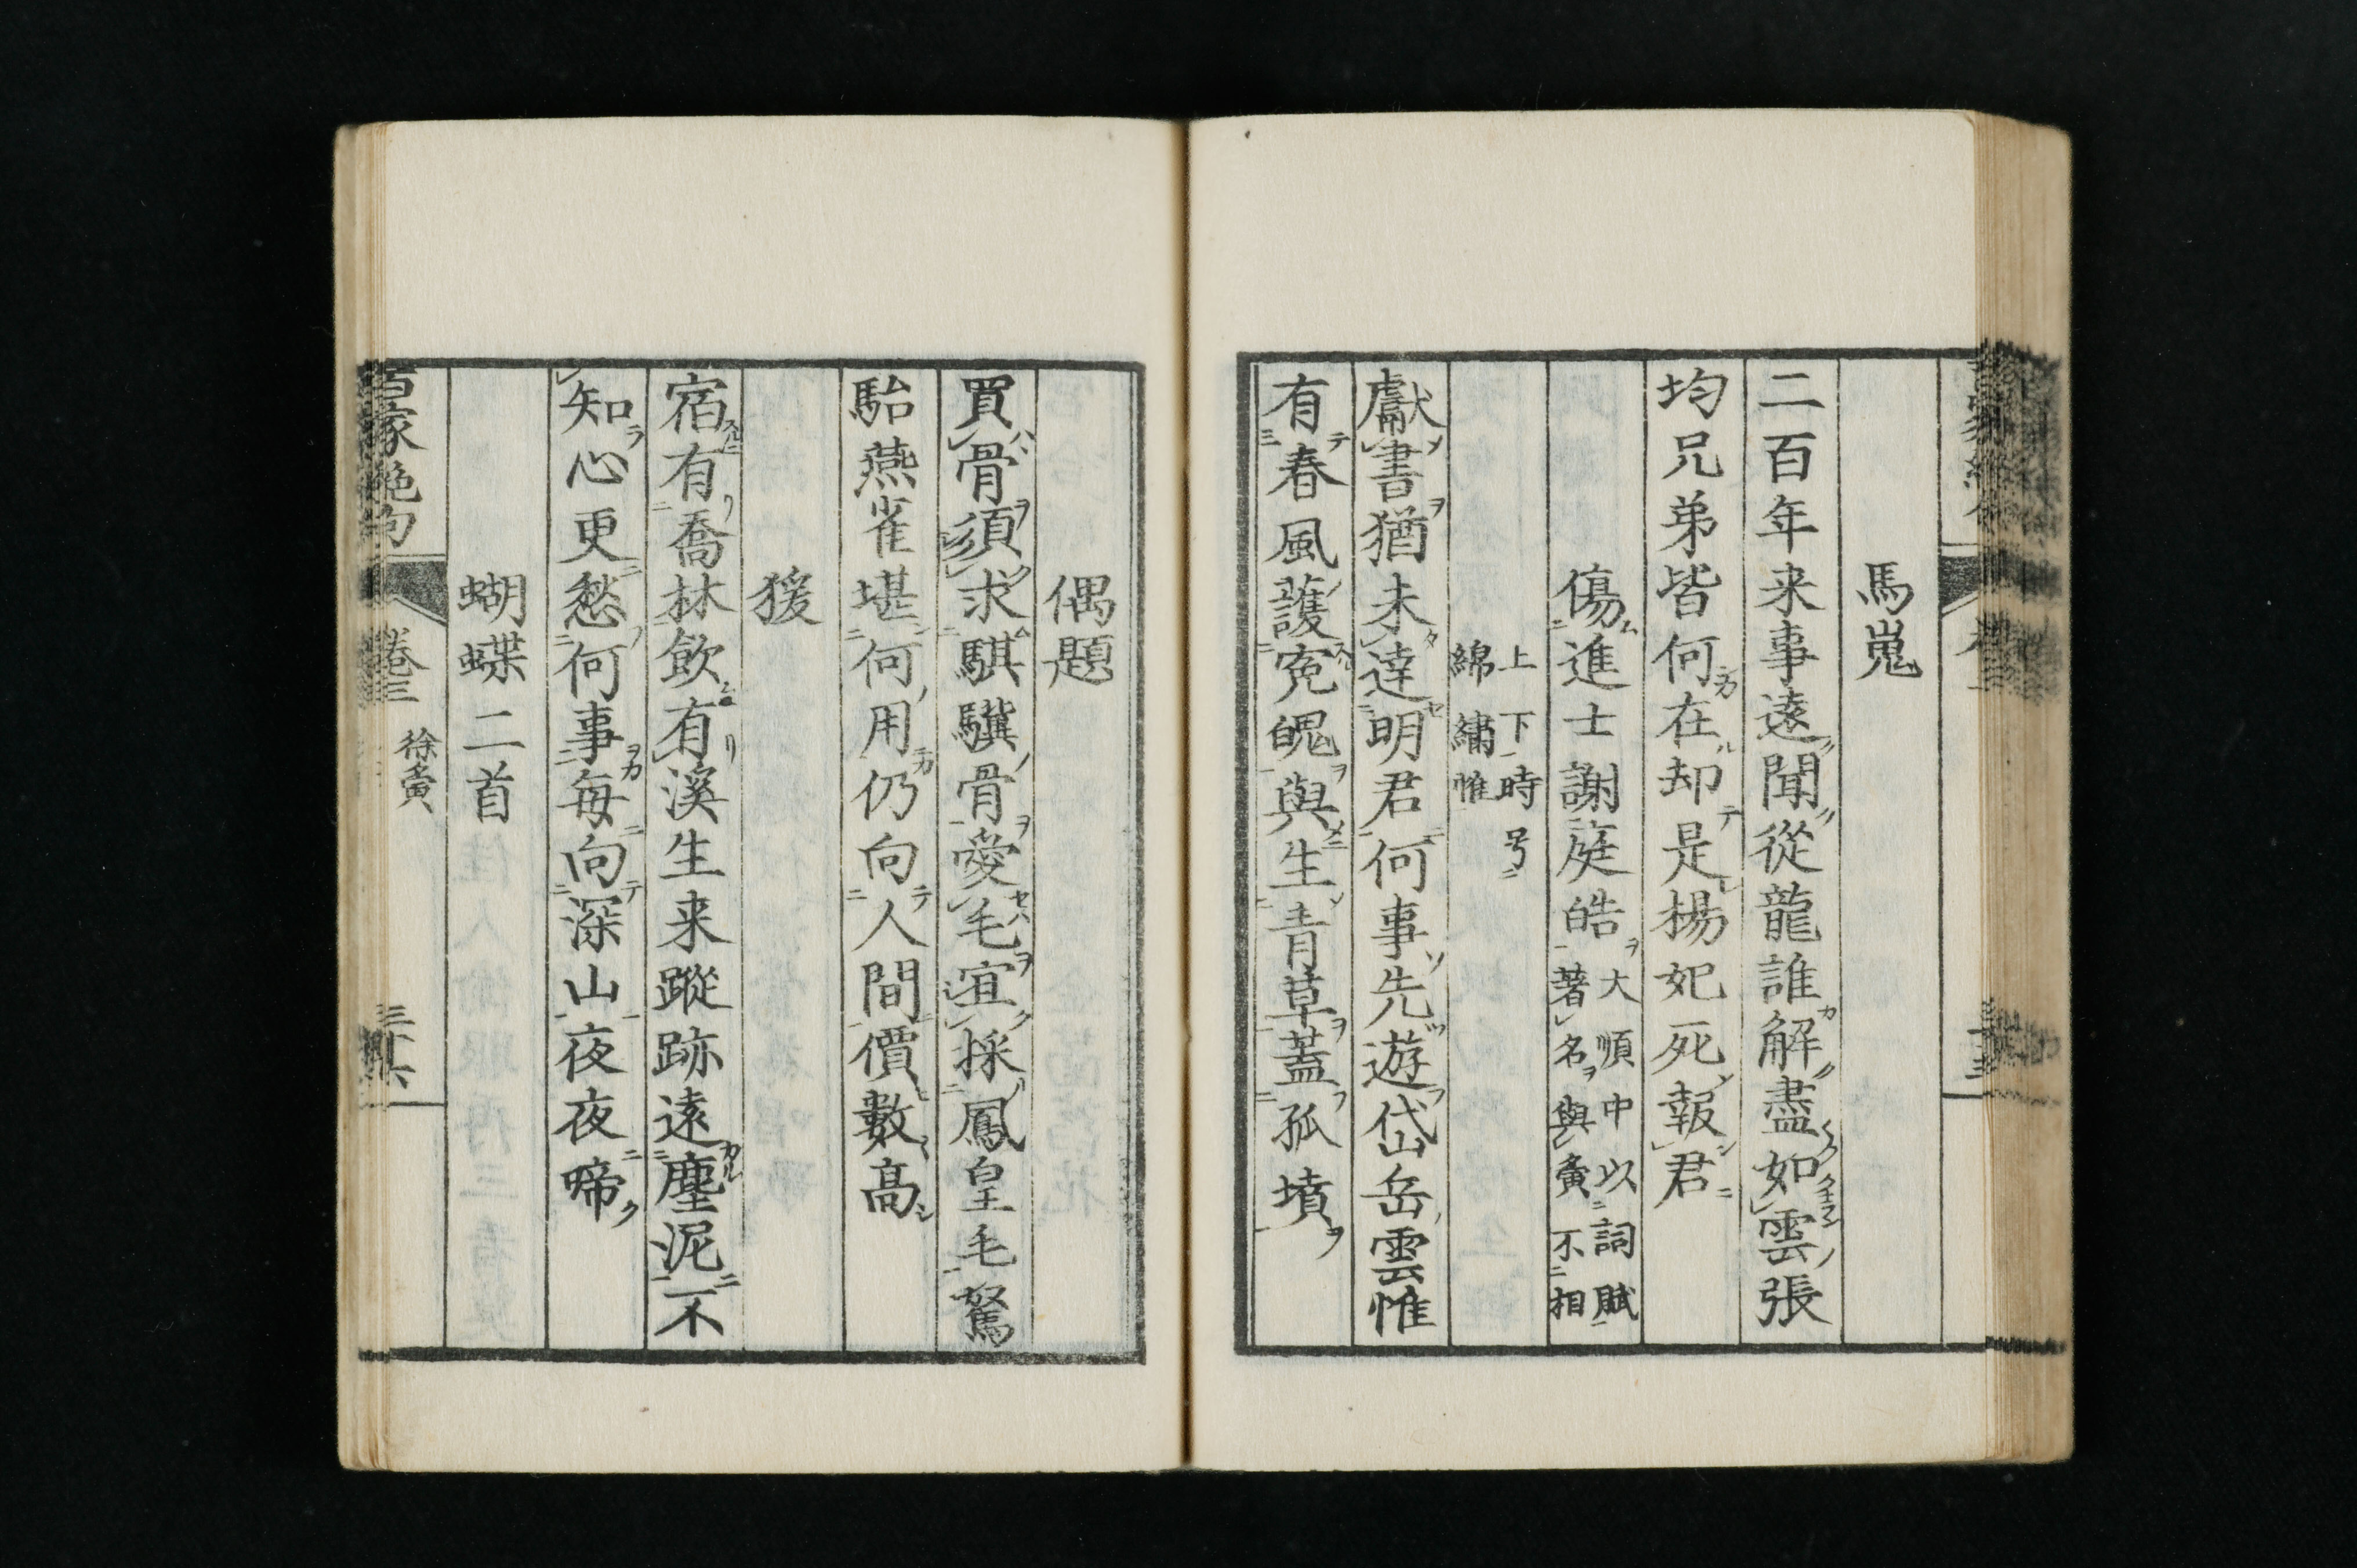 馬嵬
二百年来事遠聞從龍誰解盡如雲張
均兄弟皆何在却是楊妃死報君
傷進士謝庭皓大順中以詞賦著名與夤不相
上下時号綿繡惟
獻書猶未達明君何事先遊岱岳雲惟
有春風護寃魄與生青草蓋孤墳
偶題
買骨須求騏驥骨愛毛宜採鳳皇毛駑
駘燕雀堪何用仍向人間價數高
猨
宿有喬林飲有溪生来蹤跡遠塵泥不
知心更愁何事每向深山夜夜啼
蝴蝶二首
百家絶句 卷三 徐夤 三十六